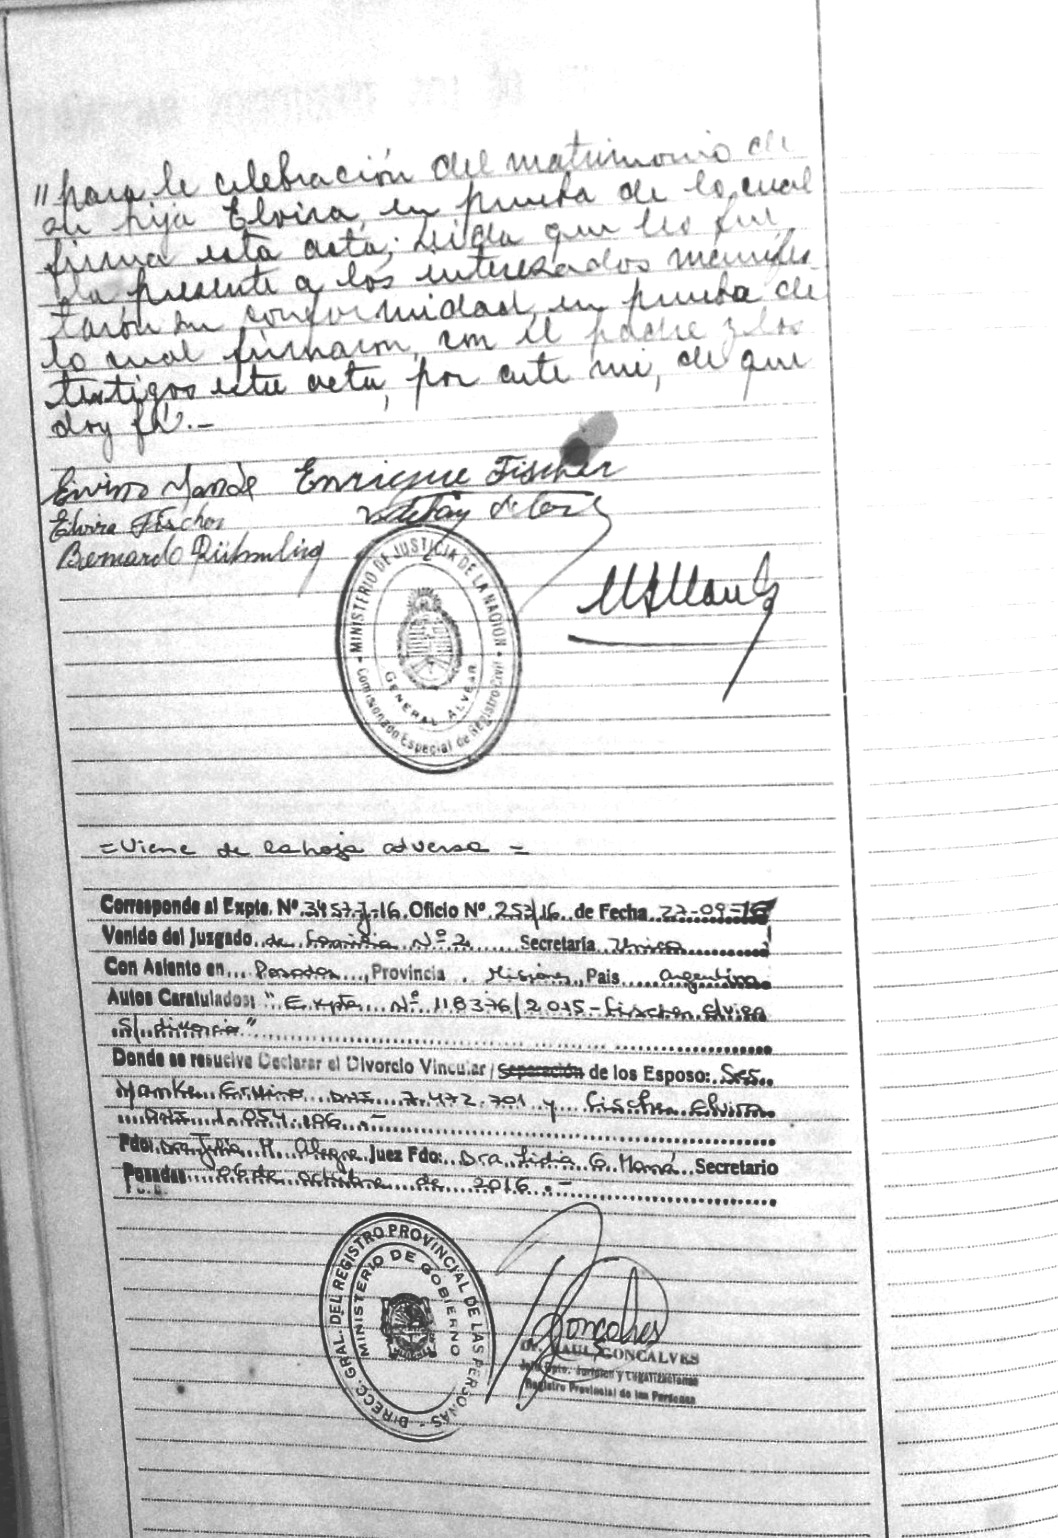 "para la celebración del matrimonio de
su hija Elvira, en prueba de lo cual
firma esta acta; leida que les fué
la presente a los interesados manifes-
tarón su conformidad, en prueba de
lo cual firmaron, con el padre y los
testigos este acta, por ante mi, de que
doy fé.-
Enrique Fischer
Elvira Fischer
Bernardo
MINISTERIO DE JUSTICIA DE LA NACION
GENERAL ALVEAR
Comisionado Especial de Registro Civil
= Viene de la hoja adversa =
Corresponde al Expte. Nº 3457-J-16 Oficio Nº 253/16 de Fecha 27-09-16
Venido del Juzgado de Familia Nº 2 Secretaría Unica
Con Asiento en Posadas, Provincia Misiones, Pais Argentina
Autos Caratulados: "Expte Nº 118376/2015 - Fischer Elvira
S/ divorcio"
Donde se resuelve Declarar el Divorcio Vincular / Separación de los Esposo: Sres.
Ervino DNI 7.472.701 y Fischer Elvira
DNI
Fdo: Dra Julia H. Alegre Juez Fdo: Dra. Lidia G. Secretario
Posadas 06 de octubre de 2016.-
DIRECC. GRAL. DEL REGISTRO PROVINCIAL DE LAS PERSONAS
MINISTERIO DE GOBIERNO
Goncalves
Dr. RAUL GONCALVES
Jefe Dpto. Jurídico y Legalizaciones
Registro Provincial de las Personas